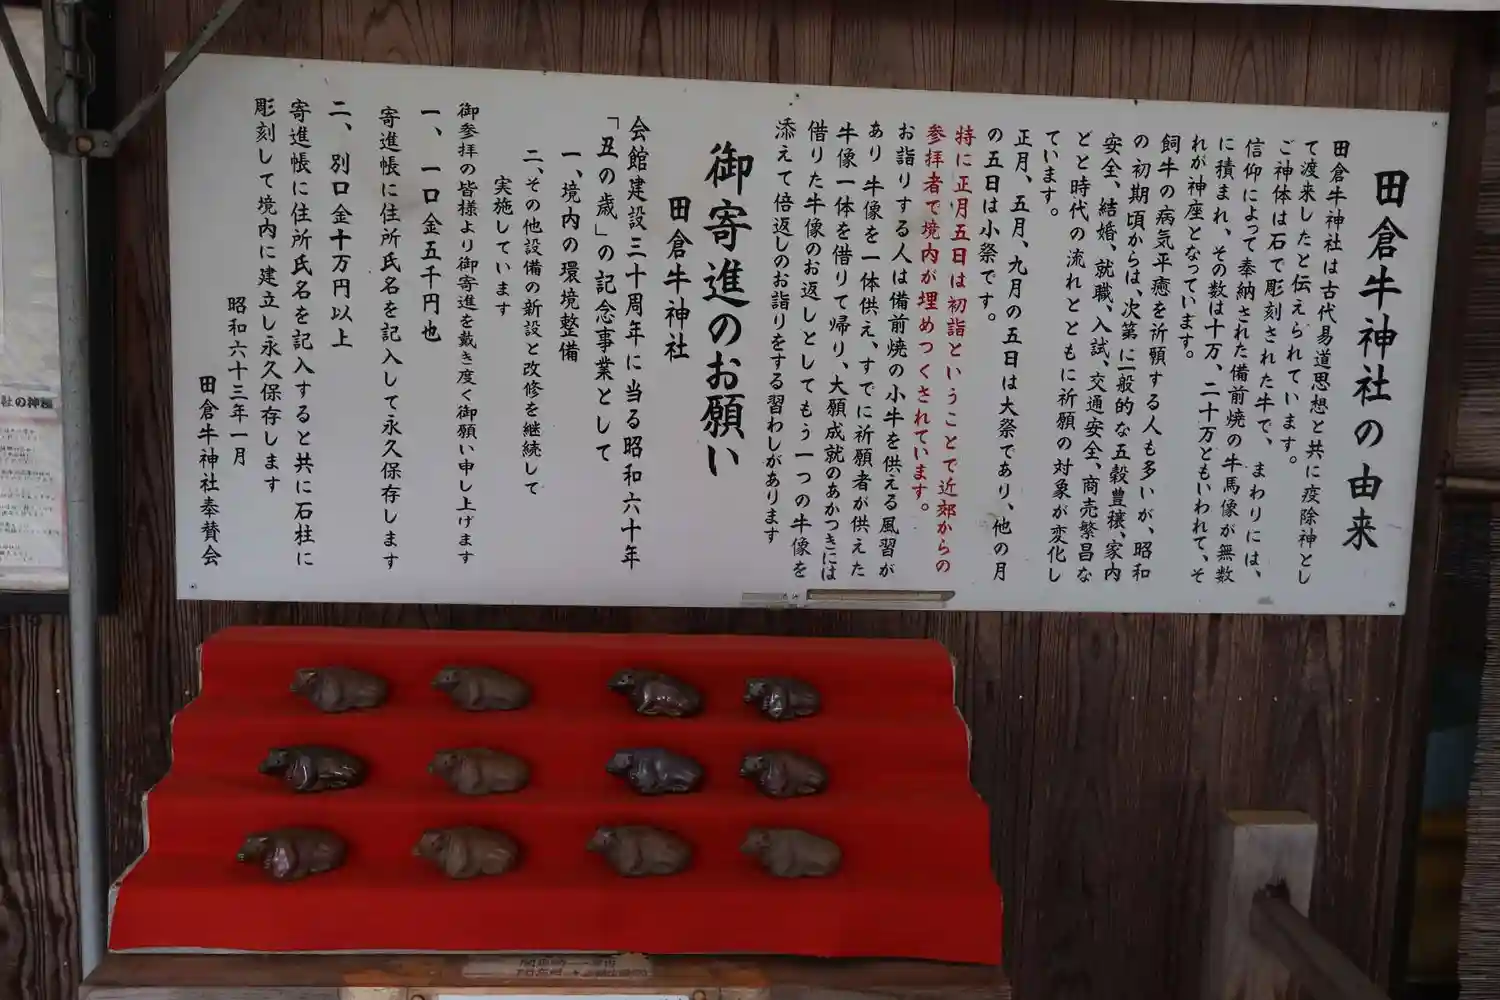 田倉牛神社の由来
田倉牛神社は古代易道思想と共に疫除神とし
て渡来したと伝えられています。
ご神体は石で彫刻された牛で、まわりには、
信仰によって奉納された備前焼の牛馬像が無数
に積まれ、その数は十万、二十万ともいわれて、そ
れが神座となっています。
飼牛の病気平癒を祈願する人も多いが、昭和
の初期頃からは、次第に一般的な五穀豊穣、家内
安全、結婚、就職、入試、交通安全、商売繁昌な
どと時代の流れとともに祈願の対象が変化し
ています。
正月、五月、九月の五日は大祭であり、他の月
の五日は小祭です。
特に正月五日は初詣ということで近郊からの
参拝者で境内が埋めつくされています。
お詣りする人は備前焼の小牛を供える風習が
あり牛像を一体供え、すでに祈願者が供えた
牛像一体を借りて帰り、大願成就のあかつきには
借りた牛像のお返しとしてもう一つの牛像を
添えて倍返しのお詣りをする習わしがあります
御寄進のお願い
田倉牛神社
会館建設三十周年に当る昭和六十年
「丑の歳」の記念事業として
一、境内の環境整備
二、その他設備の新設と改修を継続して
実施しています
御参拝の皆様より御寄進を戴き度く御願い申し上げます
一、一口金五千円也
寄進帳に住所氏名を記入して永久保存します
二、別口金十万円以上
寄進帳に住所氏名を記入すると共に石柱に
彫刻して境内に建立し永久保存します
昭和六十三年一月
田倉牛神社奉賛会